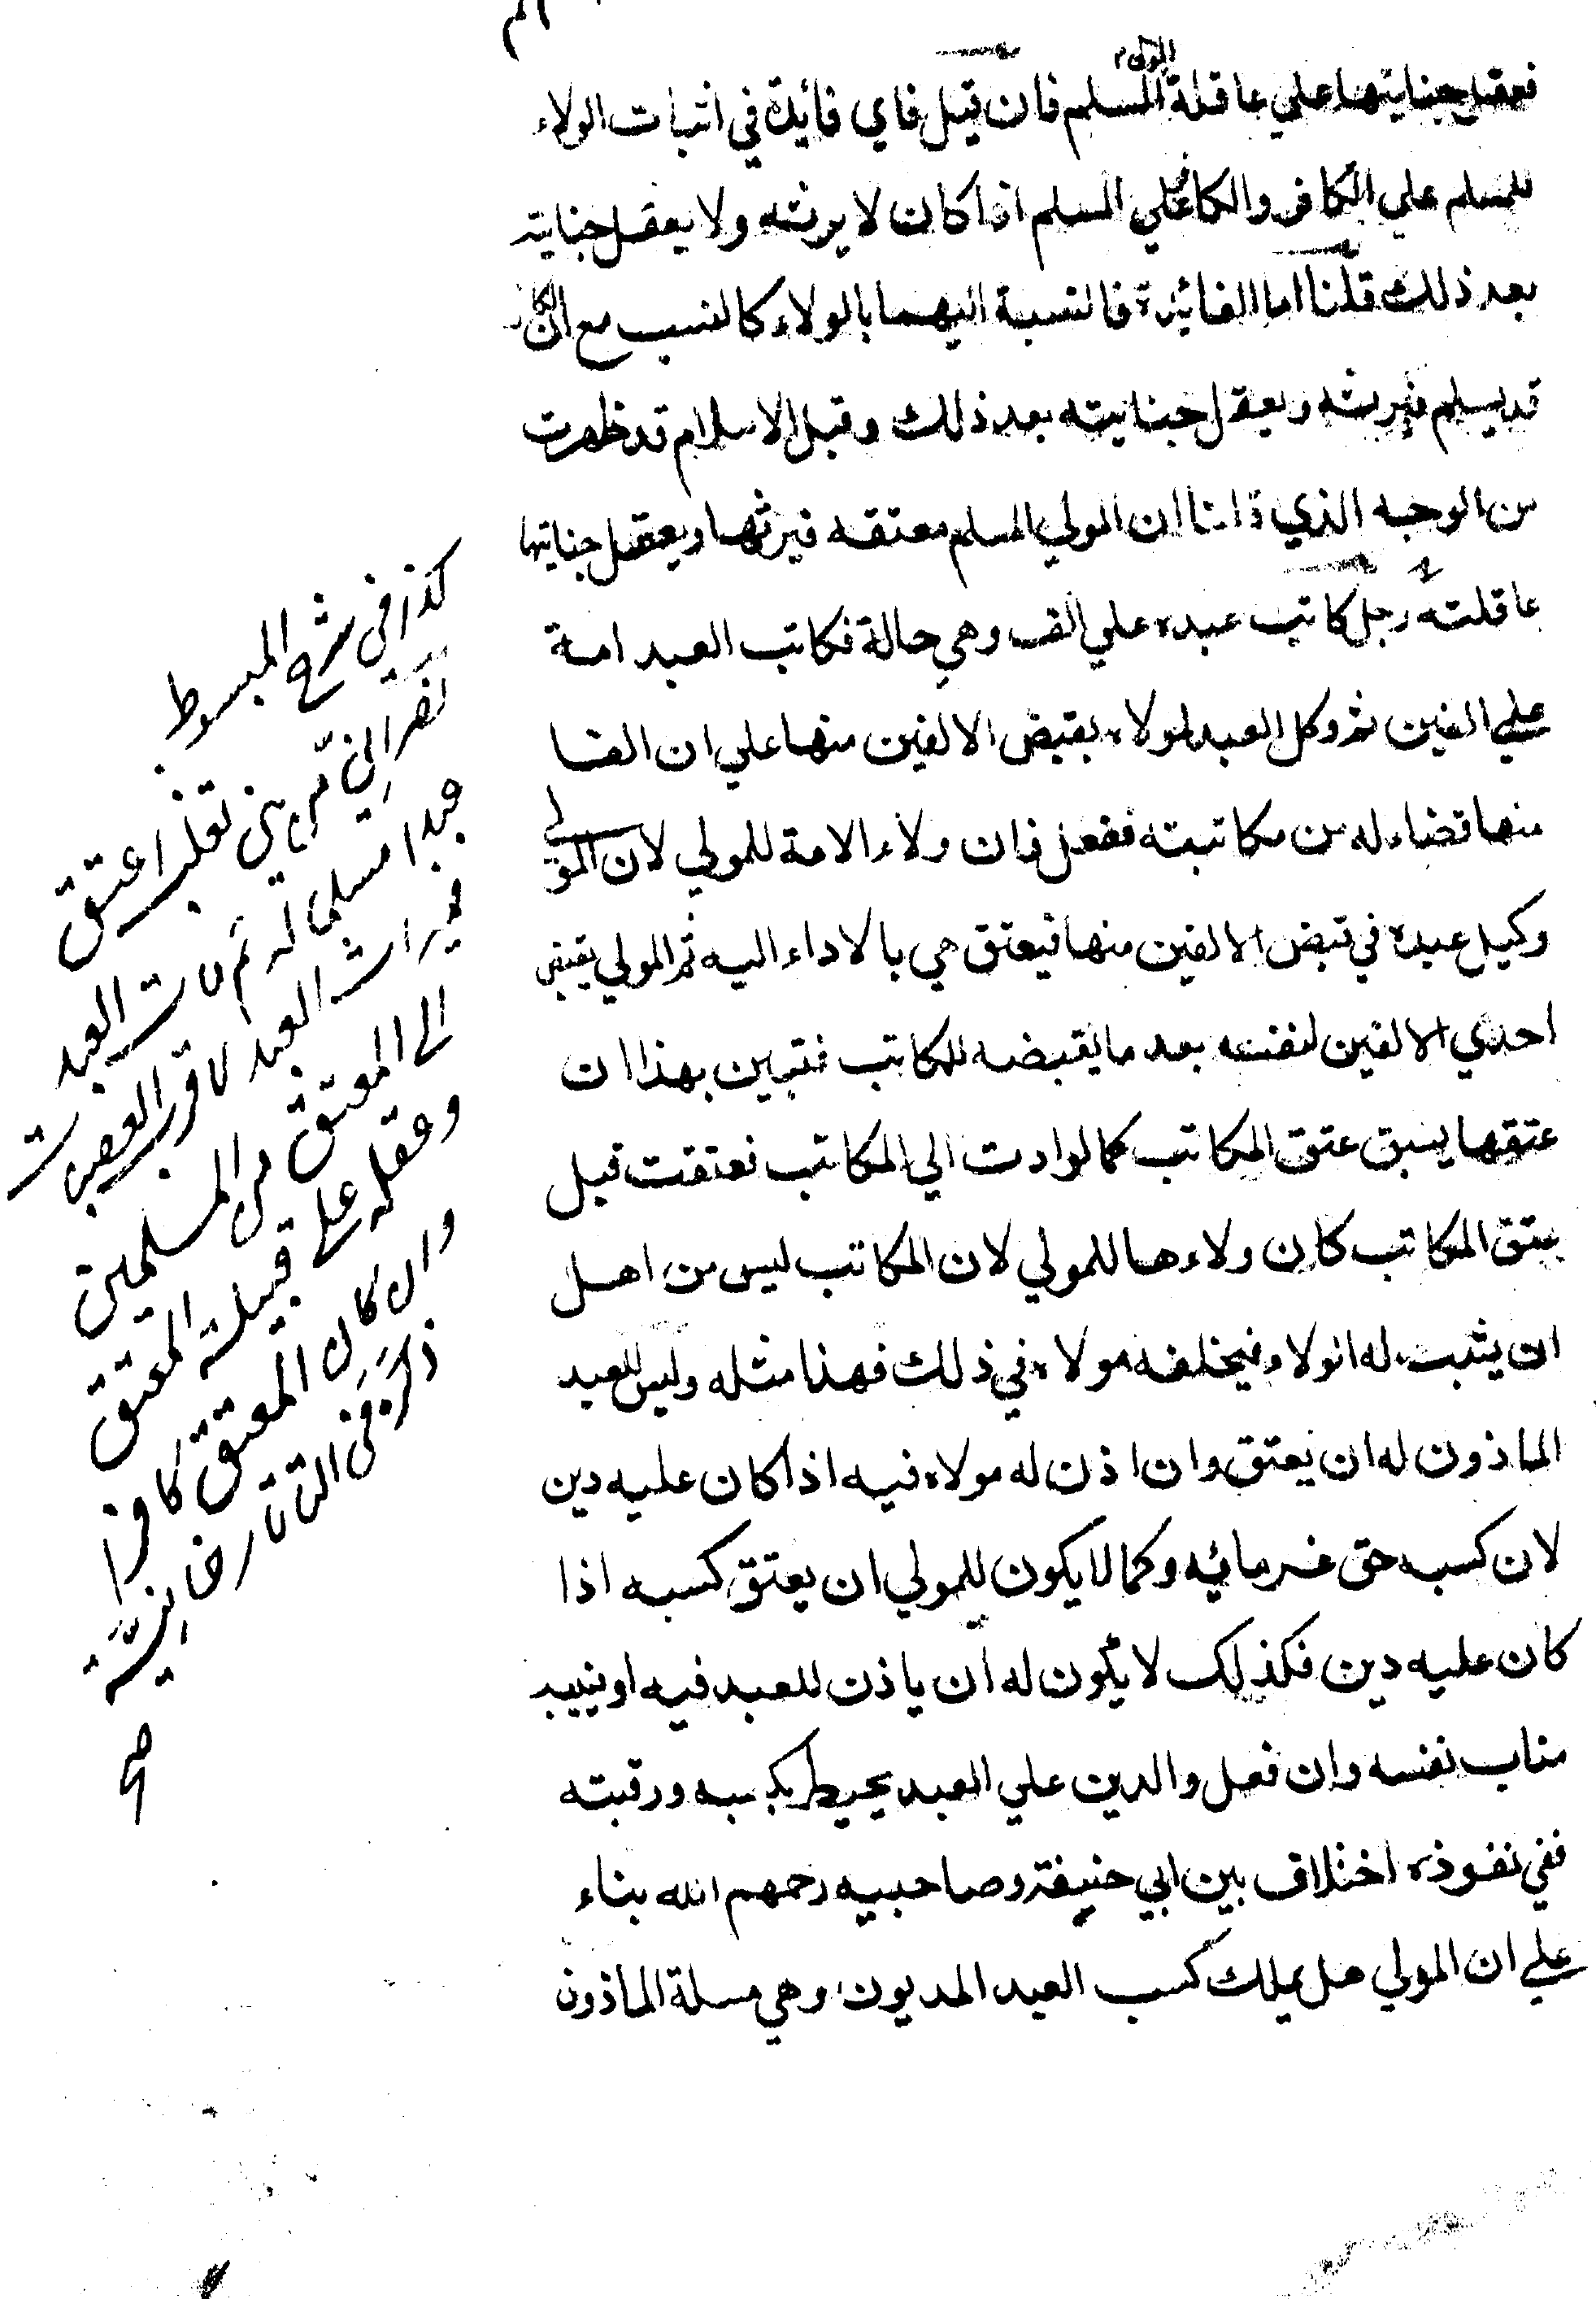 فعقل جنايتها علي عاقلة المولي المسلم فان قيل فاي فائدة في اثبات الولاء
للمسلم علي الكافر والكافر علي المسلم اذا كان لا يرثه ولا يعقل جنايته
بعد ذلك قلنا اما الفائدة فالنسبة اليهما بالولاء كالنسب مع ان الكافر
قد يسلم فيرثه ويعقل جنايته بعد ذلك وقبل الاسلام قد ظهرت
من الوجه الذي ان المولي المسلم معتقه فيرثها ويعقل جنايتها
عاقلته رجل كاتب عبده علي الف وهي حالة فكاتب العبد امة
علي الفين ثم وكل العبد لمولاه بقبض الالفين منها علي ان الفا
منها قضاء له من مكاتبته ففعل فان ولاء الامة للمولي لان المولي
وكيل عبده في قبض الالفين منها فيعتق هي بالاداء اليه ثم المولي يقبض
احدي الالفين لنفسه بعد ما يقبضه للمكاتب فتبين بهذا ان
عتقها يسبق عتق المكاتب كما لو ادت الي المكاتب فعتقت قبل
عتق المكاتب كان ولاءها للمولي لان المكاتب ليس من اهل
ان يثبت له الولاء فيخلفه مولاه في ذلك فهذا مثله وليس للعبد
الماذون له ان يعتق وان اذن له مولاه فيه اذا كان عليه دين
لان كسبه حق غرمائه وكما لا يكون للمولي ان يعتق كسبه اذا
كان عليه دين فكذلك لا يكون له ان ياذن للعبد فيه او ينيبه
مناب نفسه وان فعل والدين علي العبد يحيط بكسبه ورقبته
ففي نفوذه اختلاف بين ابي حنيفة وصاحبيه رحمهم الله بناء
علي ان المولي هل يملك كسب العبد المديون وهي مسلة الماذون
كذا في شرح المبسوط
نصراني من بني تغلب اعتق
عبدا مسلما له ثم مات العبد
فميراث العبد لاقرب العصبات
الى المعتق من المسلمين
وعقله على قبيلة المعتق
وان كان المعتق كافرا
ذكره في التاتارخانية